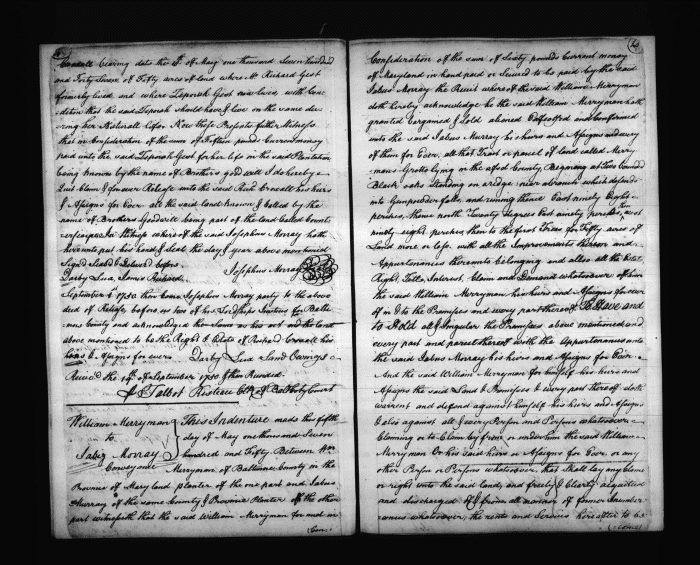 Croxall bearing date the 4th of May one thousand Seven hundred
and Forty Seven of Fifty acres of land where Mr Richard Gest
formerly lived and where Zeporah Gest now lives, with Con-
-dition that the said Zeporah should have & live on the same du-
ring her Naturall life. Now these Presents futher Witness
that in Consideration of the sum of Fifteen pounds Current money
paid unto the said Zeporah Gest for her life on the said Plantation
being known by the name of Brothers good will I do hereby
Quit Claim & forever Release unto the said Richd Croxall his heirs
& Assigns for Ever all the said land known & Called by the
name of Brothers Goodwill being part of the land Called
In Witness where of the said Josephus Murray hath
hereunto put his hand & Seal the day & year above mentioned
Signed Sealed & Delivered before
Darby Lux, James Richard. Josephus Murray
September 4th 1750 then Came Josephus Murray party to the above
deed of Release before us two of his Lordships Justices for Balti-
more County and acknowledged the Same as his act and the land
above mentioned to be the Right & Estate of Richard Croxall his
heirs & Assigns for ever. Darby Lux Saml Owings
Receiv'd the 14th of September 1750 & then Record
Talbot Risteau Clk of Balt Coty Court
William Merryman
to
Jabez Murray
Conveyance
This Indenture made this fifth
day of May one thousand Seven
hundred and Fifty Between Wm
Merryman of Baltimore County in the
Province of Maryland planter of the one part and Jabus
Murray of the same County & Province Planter of the other
part witnesseth that the said William Merryman for and in
(Con.
Consideration of the sum of Sixty pounds Current money
of Maryland in hand paid or Secured to be paid by the said
Jabus Murray the Receit where of the said William Merryman
doth hereby acknowledge he the said William Merryman hath
granted bargained & Sold aliened Enfeoffed and Confirmed
unto the said Jabus Murray his heirs and Assigns and every
of them for Ever, all that Tract or parcel of land Called Merry-
mans Grotto lying in the afsd County, Begining at Two bounded
Black oaks Standing on a ridge near a branch which desend-
into Gunpowder falls, and runing thence East ninety Eight
perches, thence north Twenty degrees East ninety perches, then west
ninety eight perches then to the first Trees for Fifty acres of
Land more or less with all the Improvements thereon and
Appurtenances thereunto belonging and also all the Estate
Right, Title, Interest, Claim and Demand whatsoever of him
the said William Merryman his heirs and Assigns for ever
of in & to the Premises and every part thereof To Have and
to Hold all & Singular the Premises above mentioned and
every part and parcel thereof with the Appurtenances unto
the said Jabus Murray his heirs and Assigns for Ever.
And the said William Merryman for himself his heirs and
Assigns the said Land & Premises & every part thereof doth
warrant and defend against himself his heirs and Assigns
& also against all & every Person and Persons whatsoever
Claiming or to Claim by from or under him the said William
Merryman Or his said heirs or Assigns for Ever or any
other Person or Persons whatsoever, that Shall lay any Claim
or right unto the said land, and freely & Clearly acquitted
and discharged of & from all manner of former Incumber-
-ances whatsoever, the rents and Services hereafter to be
(Come